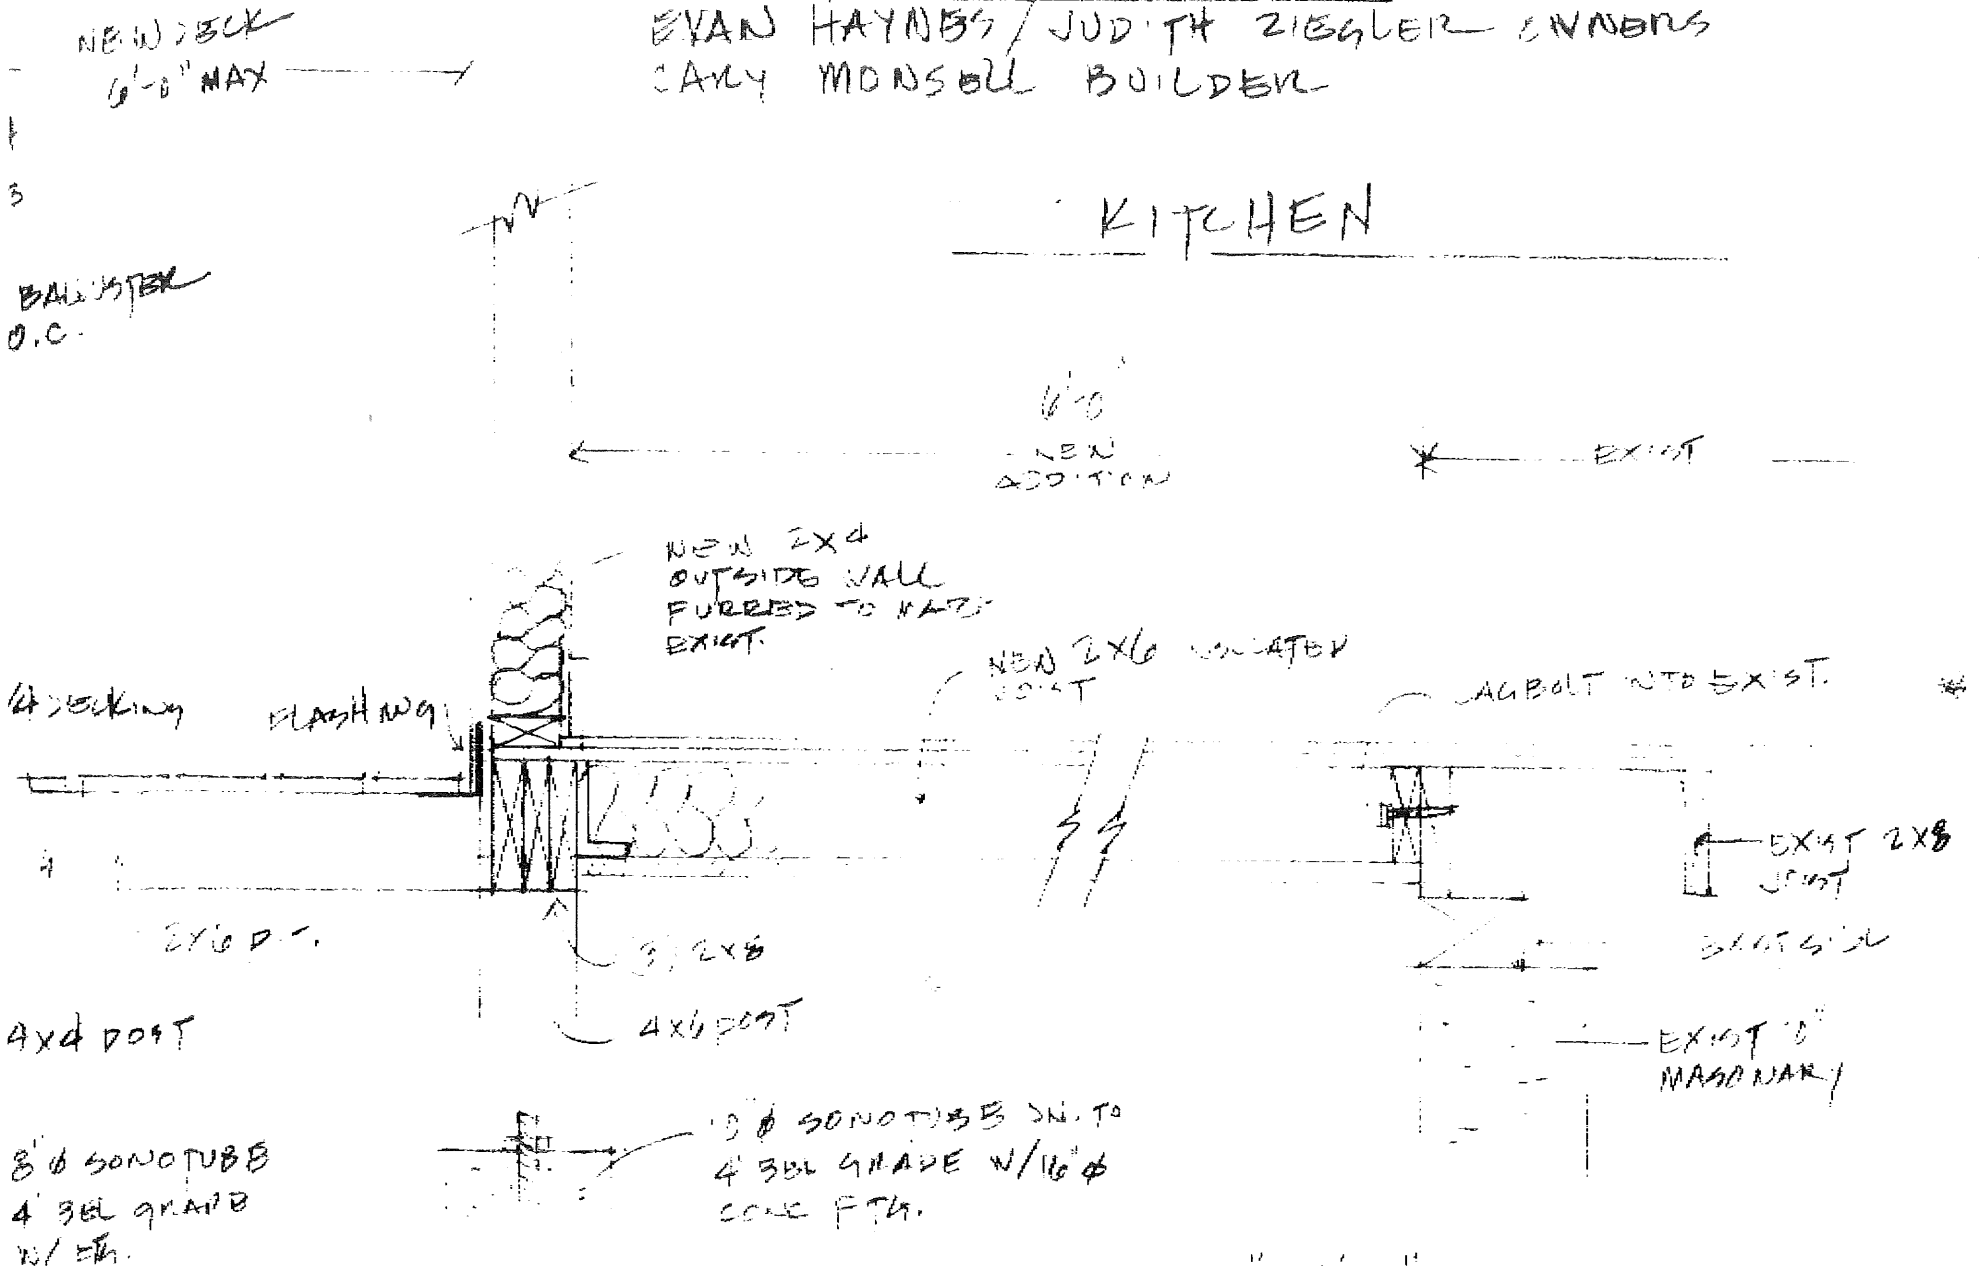 NEW DECK
6'-0" MAX
EVAN HAYNES / JUDITH ZIEGLER OWNERS
CARY MONSELL BUILDER
KITCHEN
BALUSTER
O.C.
6'-0"
NEW
ADDITION
EXIST
NEW 2X4
OUTSIDE WALL
FURRED TO
EXIST.
NEW 2X6
JOIST
LAGBOLT INTO EXIST.
DECKING
FLASHING
EXIST 2X8
JOIST
2X6 P.T.
(3) 2X8
EXIST SILL
4X4 POST
4X6 POST
EXIST
MASONARY
8"ø SONOTUBE
4' BEL GRADE
W/ FTG.
10"ø SONOTUBE DN. TO
4' BEL GRADE W/16"ø
CONC FTG.